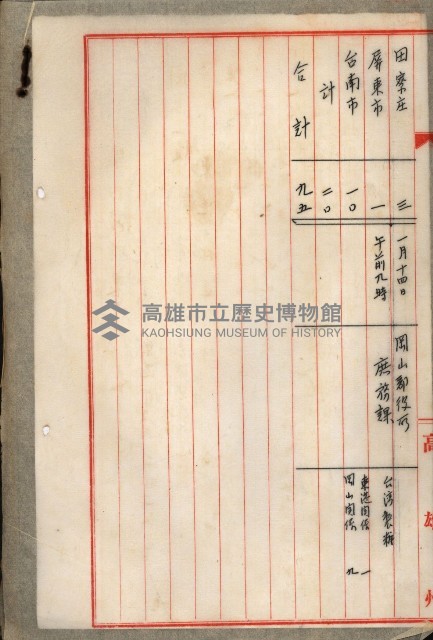 田寮庄 三 一月十四日 岡山郡役所 台湾製糖
屏東市 一 午前九時 庶務課 東港関係 一
台南市 一〇 岡山関係 九
計 二〇
合計 九五
高雄州
高雄市立歷史博物館
KAOHSIUNG MUSEUM OF HISTORY